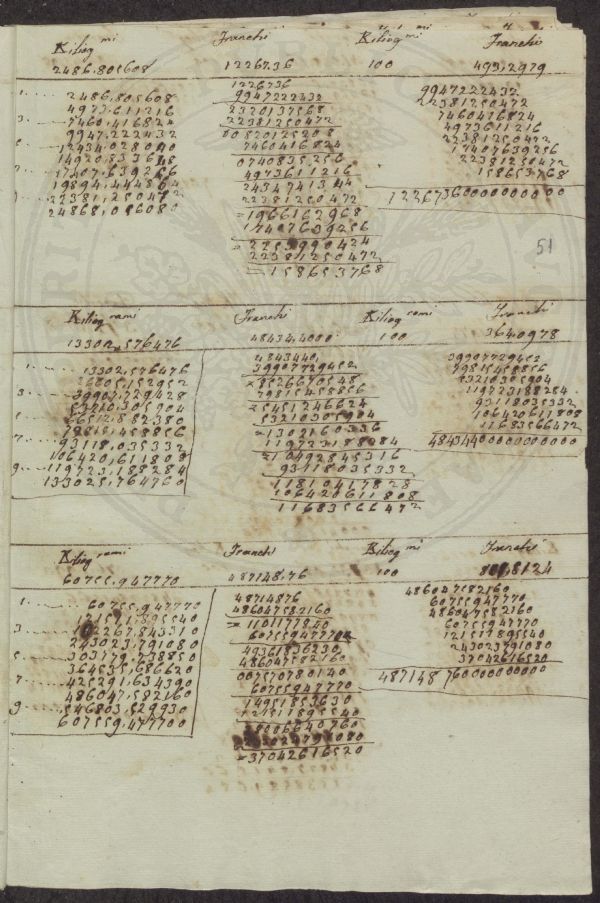 Kiliog mi Franchi Kiliog mi Franchi
2486,805608 12267,36 100 493,2979
1 2486,805608
4973,611216
3 7460,416824
9947,222432
5 12434,028040
14920,833648
7 17407,639256
19894,444864
9 22381,250472
24868,056080
1226736
9947222432
2320137568
22381250472
00820125208
7460416824
0740835256
4973611216
2434741344
22381250472
=1966162968
17407639256
=2253990424
22381250472
=158653768
9947222432
22381250472
7460416824
4973611216
22381250472
17407639256
22381250472
158653768
12267360000000000
51
Kiliog rami Franchi Kiliog rami Franchi
13302,576476 48434,4000 100 364,0978
1 13302,576476
26605,152952
3 39907,729428
53210,305904
5 66512,882380
79815,458856
7 93118,035332
106420,611808
9 119723,188284
133025,764760
4843440
39907729452
=8526670548
79815458856
=5451246624
53210305904
=1302160336
119723188284
=10492845316
93118035332
11810417828
106420611808
11683566472
39907729452
79815458856
53210305904
119723188284
93118035332
106420611808
11683566472
4843440000000000
Kiliog rami Franchi Kiliog mi Franchi
60755,947770 487148,76 100 801,8124
1 60755,947770
121511,895540
3 182267,843310
243023,791080
5 303779,738850
364535,686620
7 425291,634390
486047,582160
9 546803,529930
607559,477700
48714876
486047582160
=1101177840
60755947770
49361836230
486047582160
007570780140
60755947770
14951853630
121511895540
28006640760
243023791080
=37042616520
486047582160
60755947770
486047582160
60755947770
121511895540
243023791080
37042616520
487148760000000000